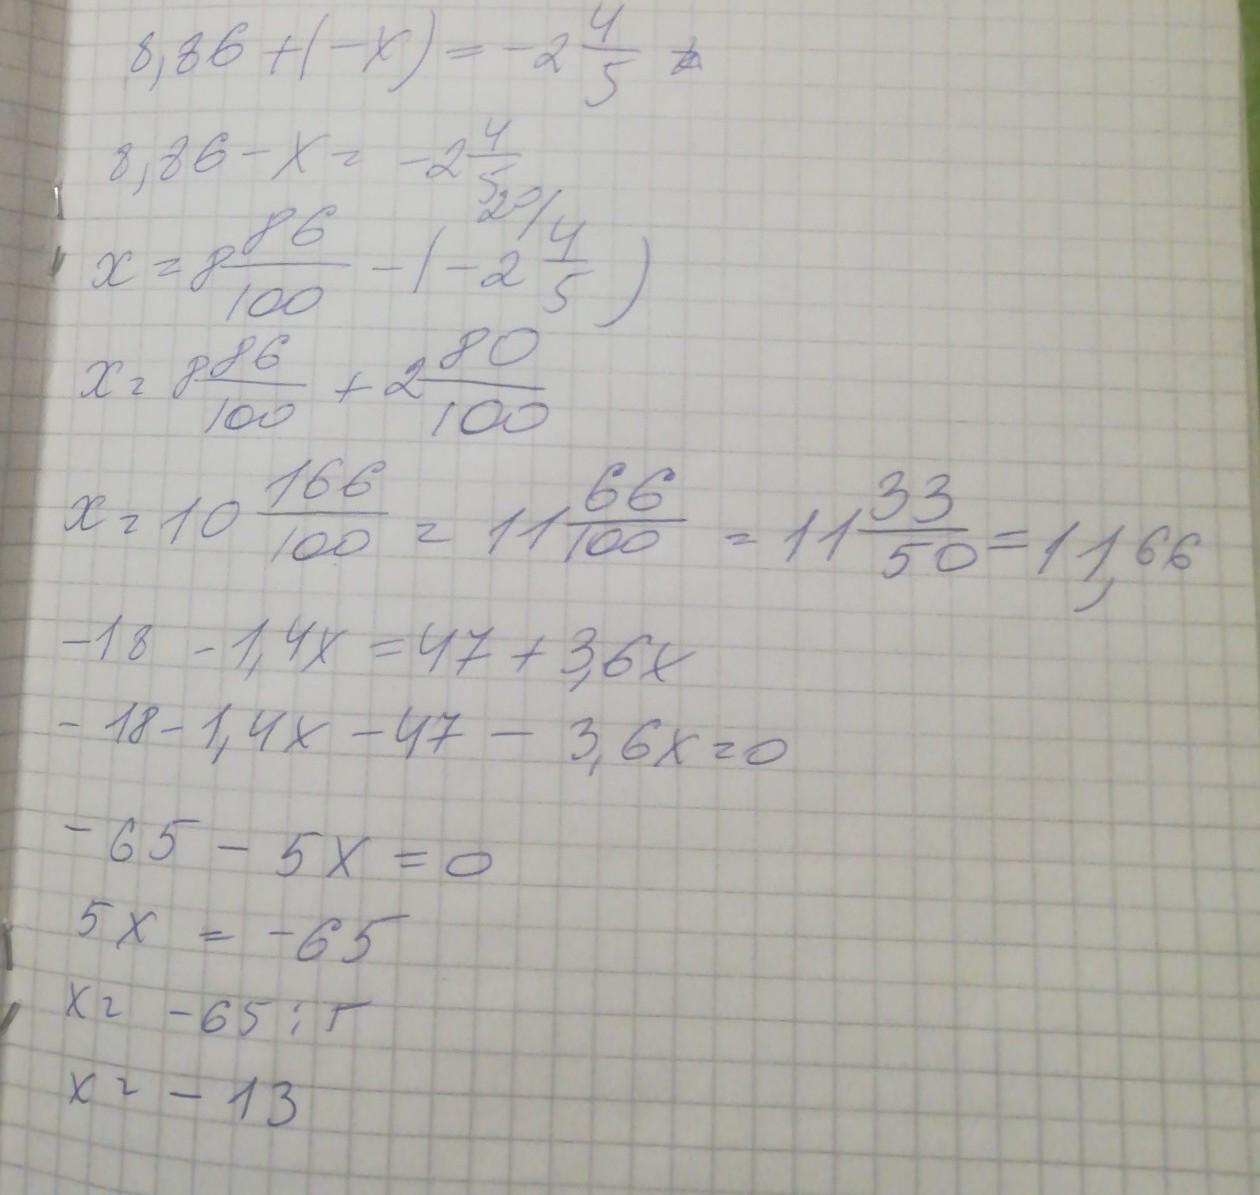 8,86 + (-x) = -2 4/5
8,86 - x = -2 4/5
x = 8 86/100 - (-2 20/ 4/5)
x = 8 86/100 + 2 80/100
x = 10 166/100 = 11 66/100 = 11 33/50 = 11,66
-18 - 1,4x = 47 + 3,6x
-18 - 1,4x - 47 - 3,6x = 0
-65 - 5x = 0
5x = -65
x = -65 : 5
x = -13